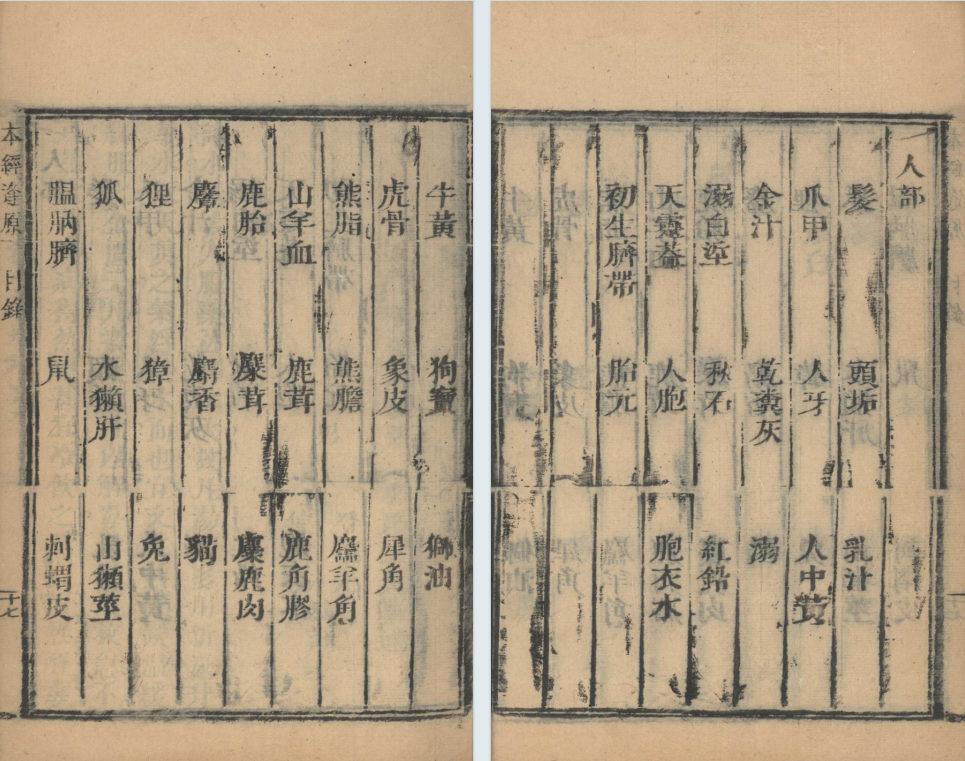 牛黃 狗寶 獅油
虎骨 象皮 犀角
熊脂 熊膽 麢羊角
山羊血 鹿茸 鹿角膠
鹿胎 麋茸 麋鹿肉
麝香 貓
狸 獐 兔
狐 水獺肝 山獺莖
膃肭臍 鼠 刺蝟皮
本經逢原 目錄 十七
人部
髮 頭垢 乳汁
爪甲 人牙 人中黃
金汁 乾糞灰 溺
溺白垽 秋石 紅鉛
天靈葢 人胞 胞衣水
初生臍帶 胎元